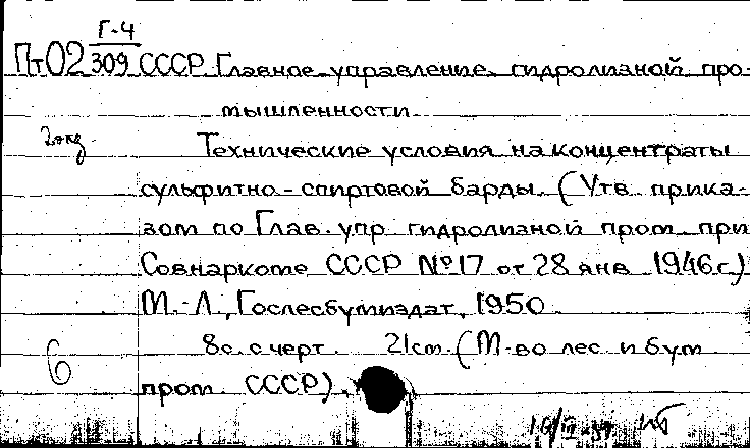 Г-4
Пт02 309 СССР. Главное управление гидролизной про-
мышленности.
2 экз
Технические условия на концентраты
сульфитно-спиртовой барды. (Утв. прика-
зом по Глав. упр. гидролизной пром. при
Совнаркоме СССР №17 от 28 янв. 1946 г.)
М.-Л., Гослесбумиздат, 1950.
8 с. с черт. 21 см. (М-во лес. и бум.
6 пром. СССР).